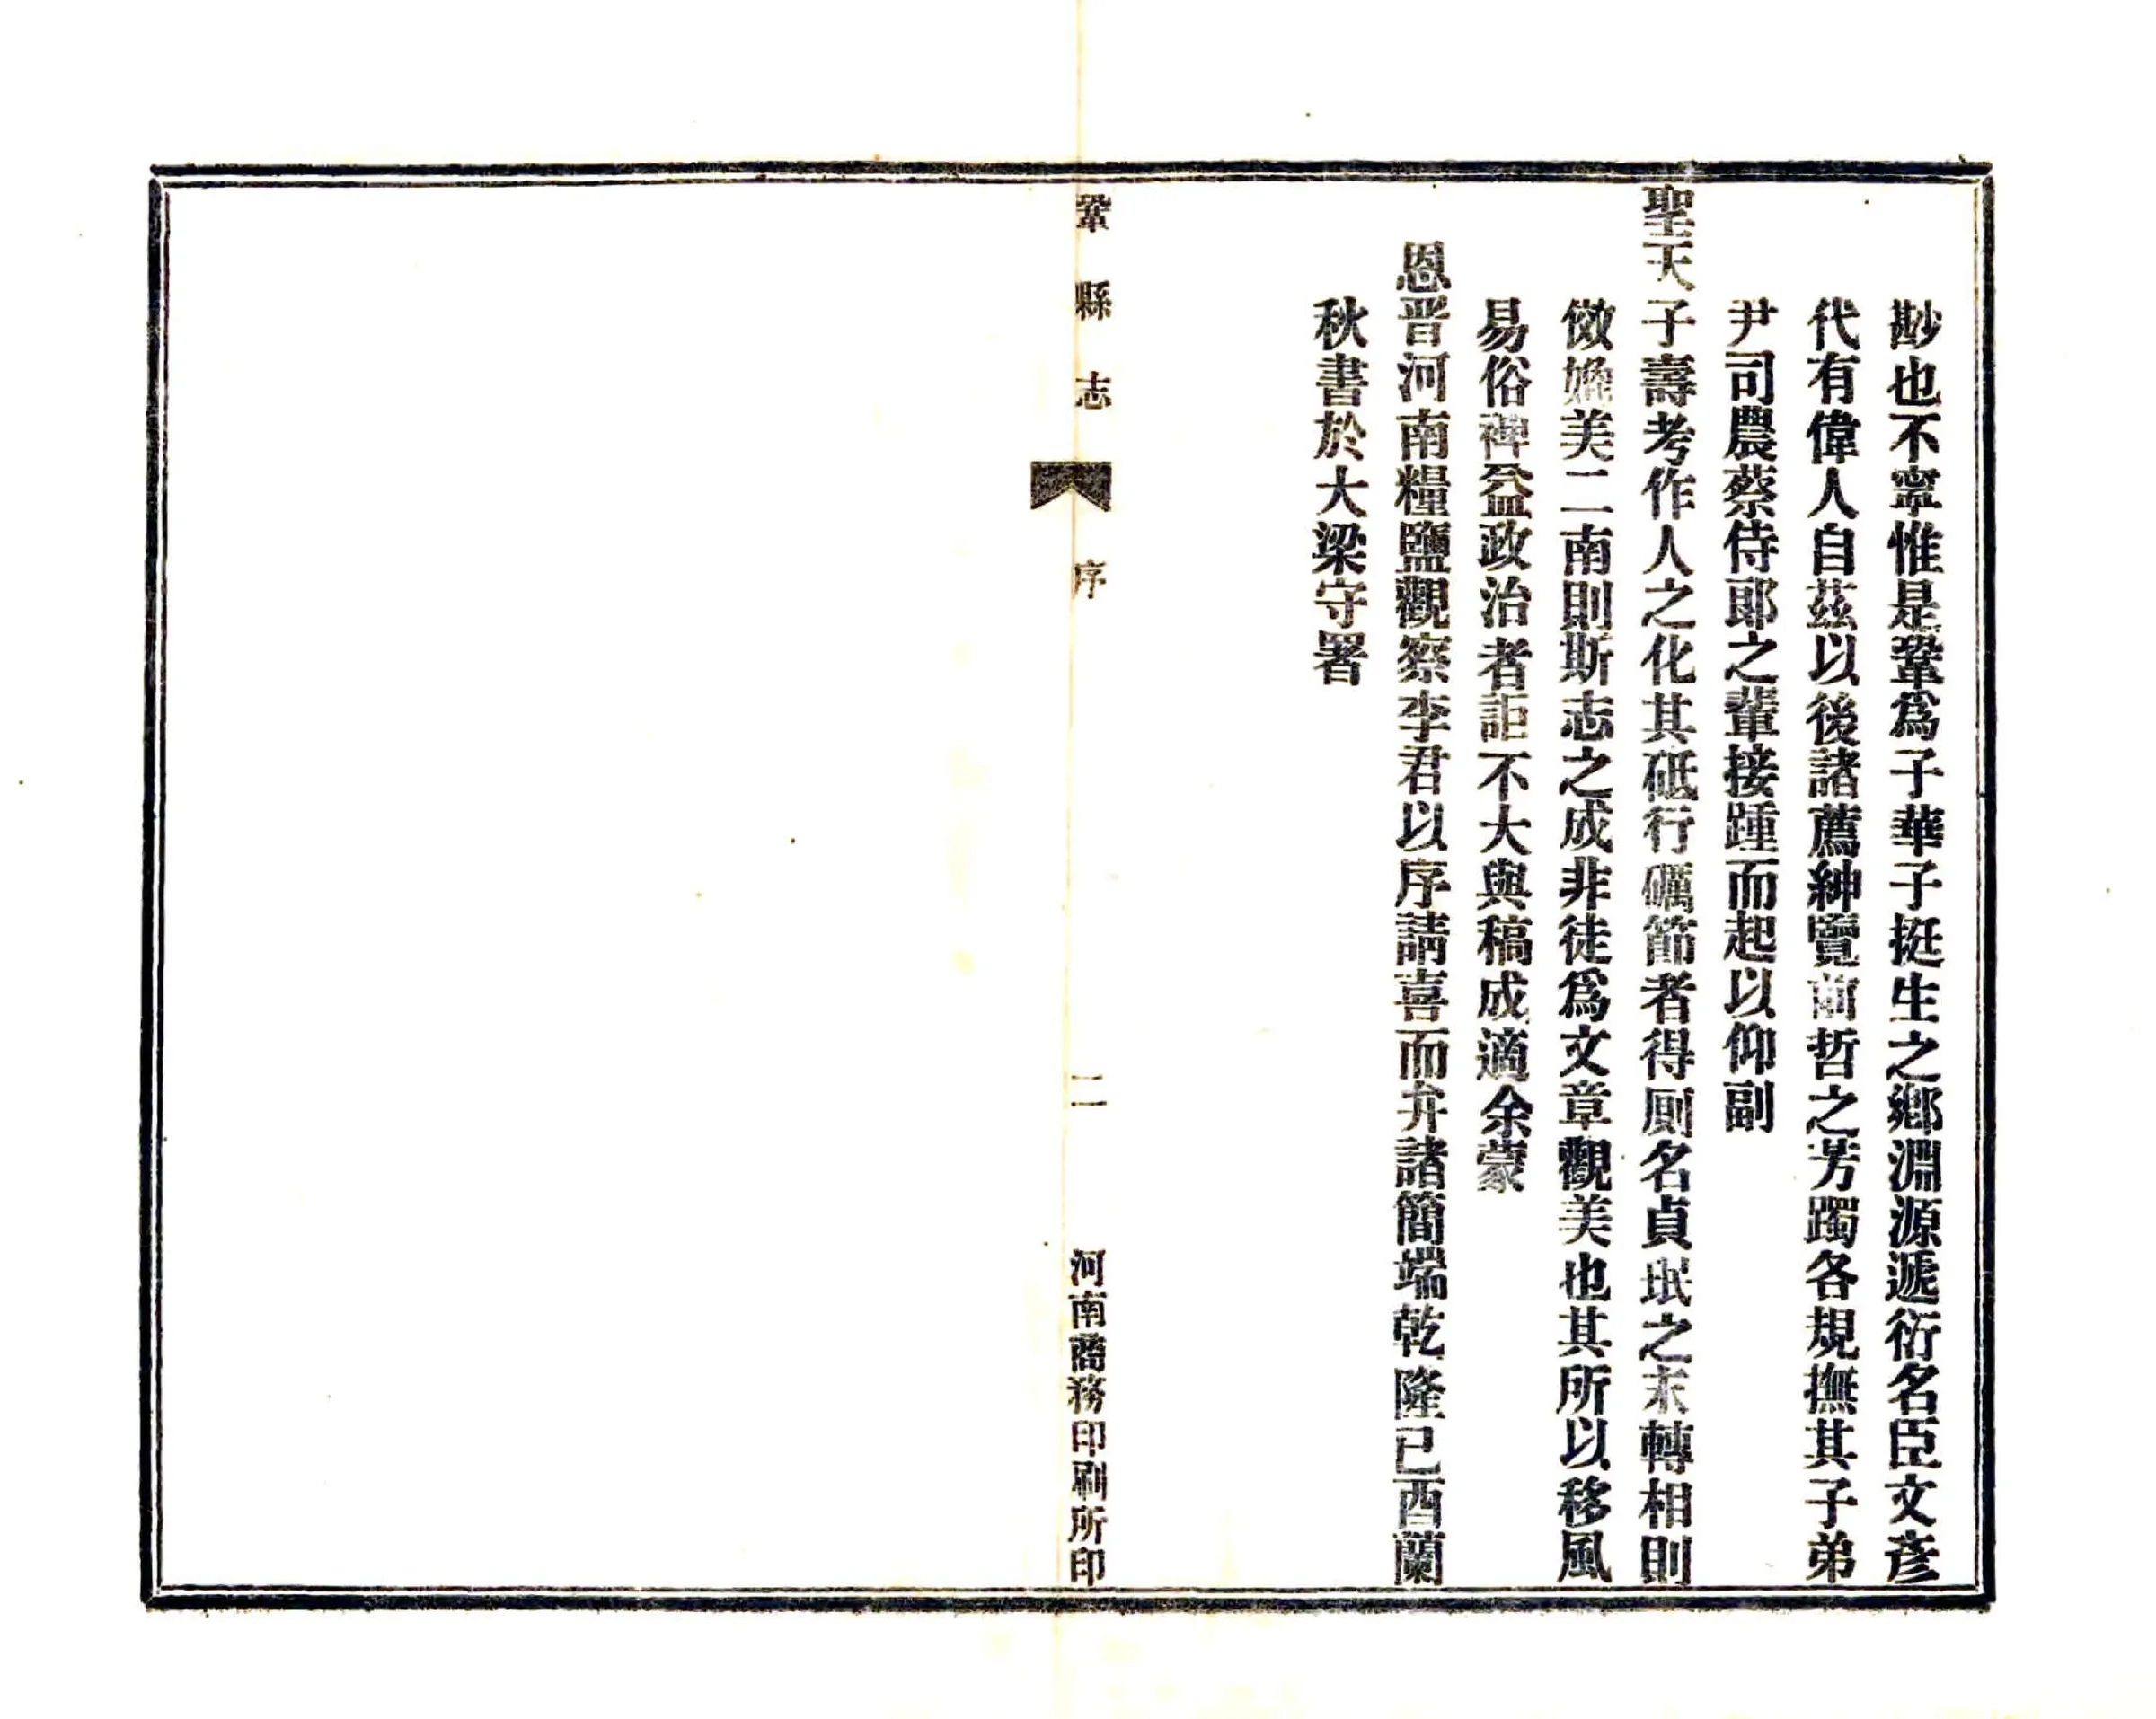 尠也不寧惟是鞏爲子華子挺生之鄉淵源遞衍名臣文彥
代有偉人自茲以後諸薦紳覽前哲之芳躅各規撫其子弟
尹司農蔡侍郎之輩接踵而起以仰副
聖天子壽考作人之化其砥行礪節者得厠名貞珉之末轉相則
傚媲美二南則斯志之成非徒爲文章觀美也其所以移風
易俗裨益政治者詎不大與稿成適余蒙
恩晋河南糧鹽觀察李君以序請喜而弁諸簡端乾隆已酉蘭
秋書於大梁守署
鞏縣志
序
二
河南商務印刷所印